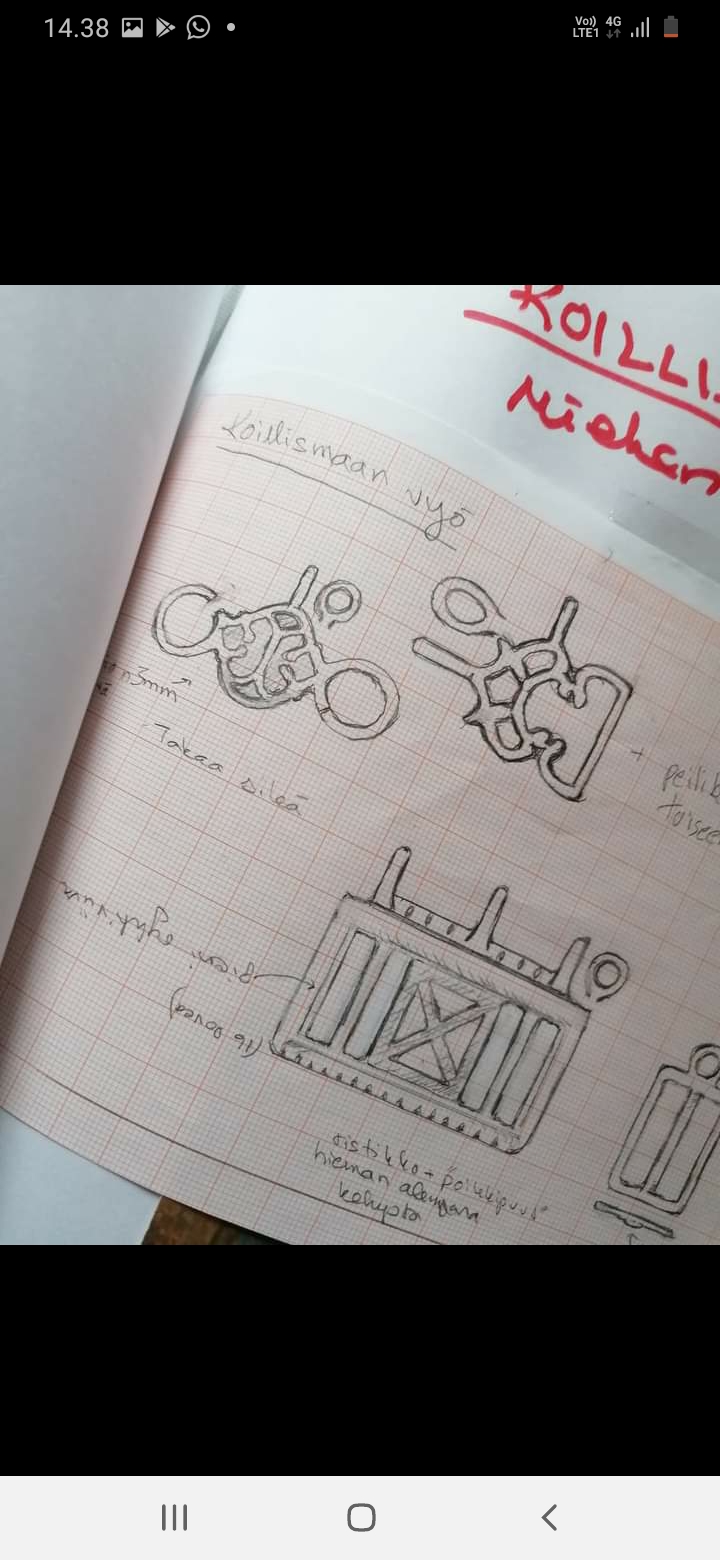 14.38
Vo))
LTE1
4G
KOILLI
Miehen
Koillismaan vyö
n 3mm
Takaa sileä
+ peilik
toisee
pieni
(16
ristikko + "poikkipuut"
hieman alempana
kehystä